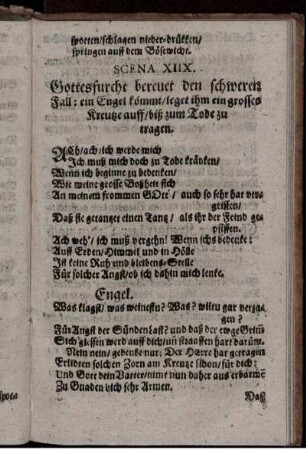 spotten/schlagen nieder-drükken/
springen auff dem Bösewicht.
SCENA XIIX.
Gottesfurcht bereuet den schweren
Fall: ein Engel kömmt/leget ihm ein grosses
Kreutze auff/biß zum Tode zu
tragen.
ACh/ach/ich werde mich
Ich muß mich doch zu Tode kränken/
Wenn ich beginne zu bedenken/
Wie meine grosse Boßheit sich
An meinem frommen GOtt/ auch so sehr hat ver-
griffen/
Daß sie getanzet einen Tanz/ als ihr der Feind ge-
pfiffen.
Ach weh'/ ich muß vergehn! Wenn ichs bedenke:
Auff Erden/Himmel und in Hölle
Ist keine Ruh und bleibens-Stelle
Für solcher Angst/ob ich dahin mich lenke.
Engel.
Was klagst/ was weinestu? Was? wiltu gar verza-
gen?
Für Angst der Sünden Last? und daß der ewge Grim̃
Sich giessen werd auff dich/un̄ straaffen hart darüm.
Nein nein/ gedenke nur: Der Herre hat getragen
Erlidten solchen Zorn am Kreutze schon/für dich:
Und Gott dein Vatter/nimt nun daher aus erbarme
Zu Gnaden dich sehr Armen.
Daß